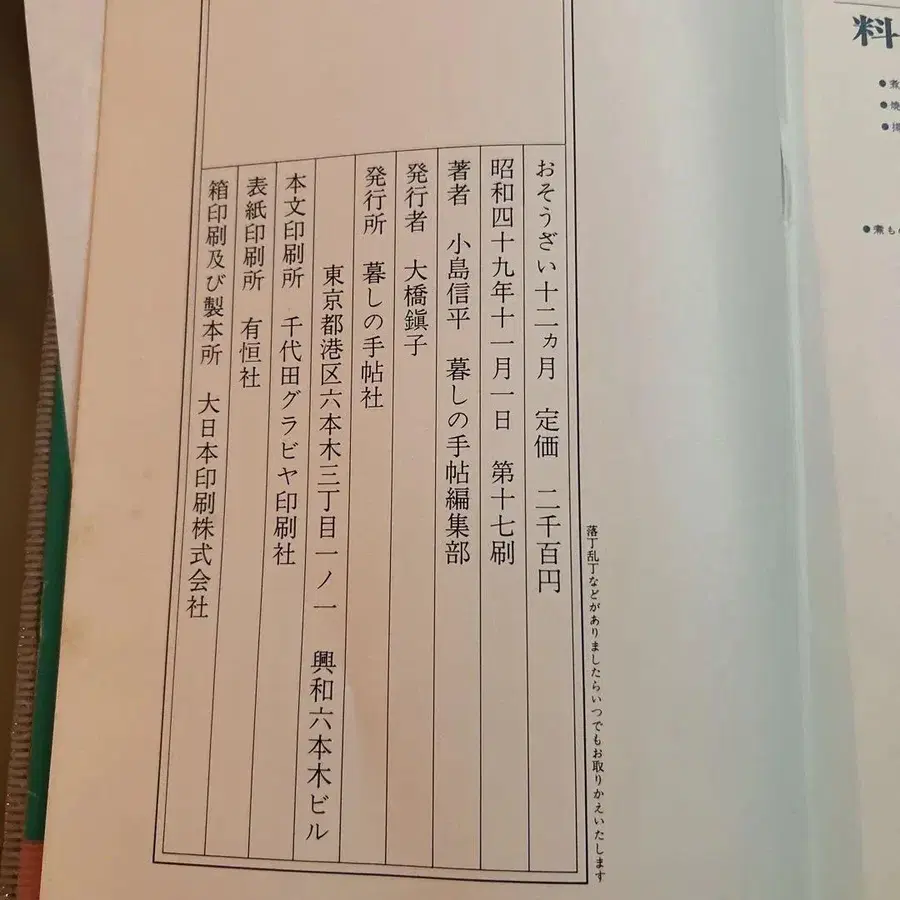 料
落丁乱丁などがありましたらいつでもお取りかえいたします
おそうざい十二ヵ月 定価 二千百円
昭和四十九年十一月一日 第十七刷
著者 小島信平 暮しの手帖編集部
発行者 大橋鎭子
発行所 暮しの手帖社
東京都港区六本木三丁目一ノ一 興和六本木ビル
本文印刷所 千代田グラビヤ印刷社
表紙印刷所 有恒社
箱印刷及び製本所 大日本印刷株式会社